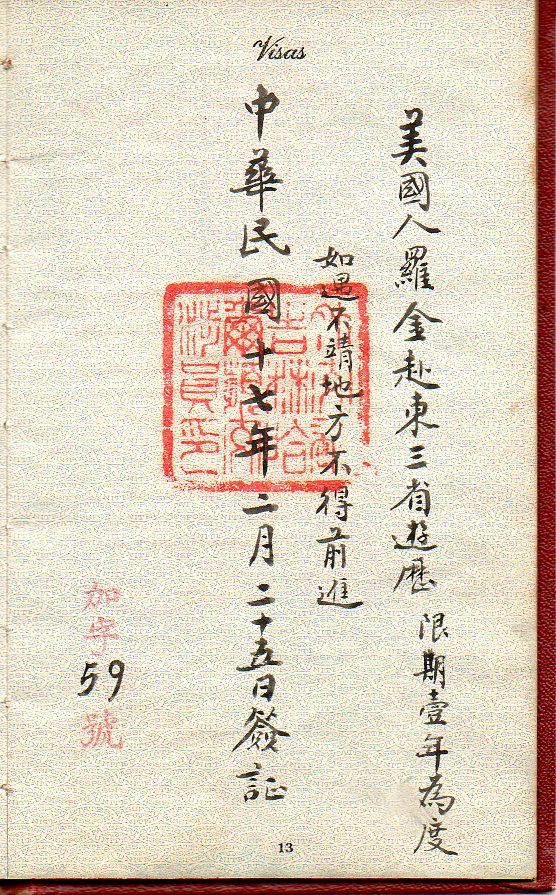 Visas
美國人羅金赴東三省遊歷限期壹年為度
如遇不靖地方不得前進
吉林哈
爾濱交
涉員印
中華民國十七年二月二十五日簽証
加字59號
13